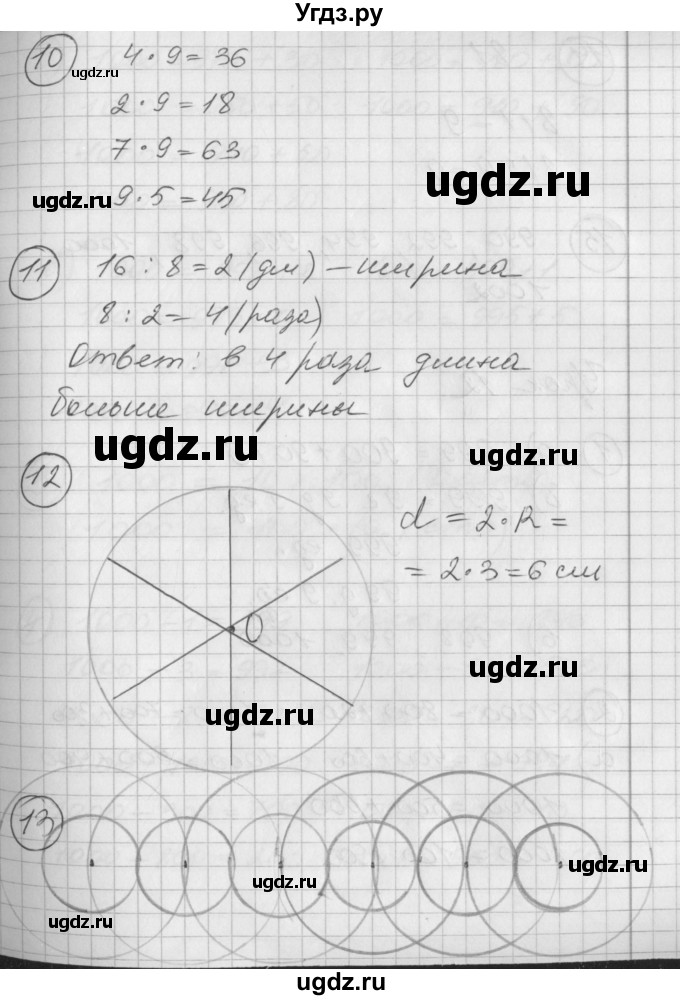 Угдз.ру
10 4 · 9 = 36
ugdz.ru
2 · 9 = 18
7 · 9 = 63
ugdz.ru
ugdz.ru 9 · 5 = 45
11 16 : 8 = 2 (дм) – ширина
8 : 2 = 4 (раза)
Ответ: в 4 раза длина
больше ширины
ugdz.ru
ugdz.ru
12
d = 2 · R =
= 2 · 3 = 6 см
O
ugdz.ru
ugdz.ru
13
ugdz.ru
ugdz.ru
ugdz.ru
ugdz.ru